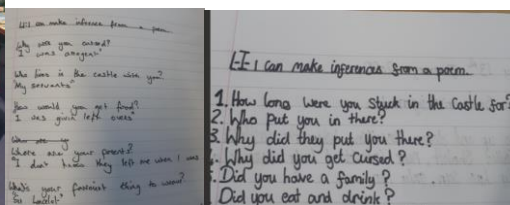 LI: I can make inferences from a poem.
Why were you cursed?
"I was
Who lives in the castle with you?
"My servants"
How would you get food?
"I was given left overs"
Where are your parents?
"I don't know they left me when I was
What's your favourite thing to wear?
L.I- I can make inferences from a poem.
1. How long were you stuck in the Castle for?
2. Who put you in there?
3. Why did they put you there?
4. Why did you get cursed?
5. Did you have a family?
Did you eat and drink?